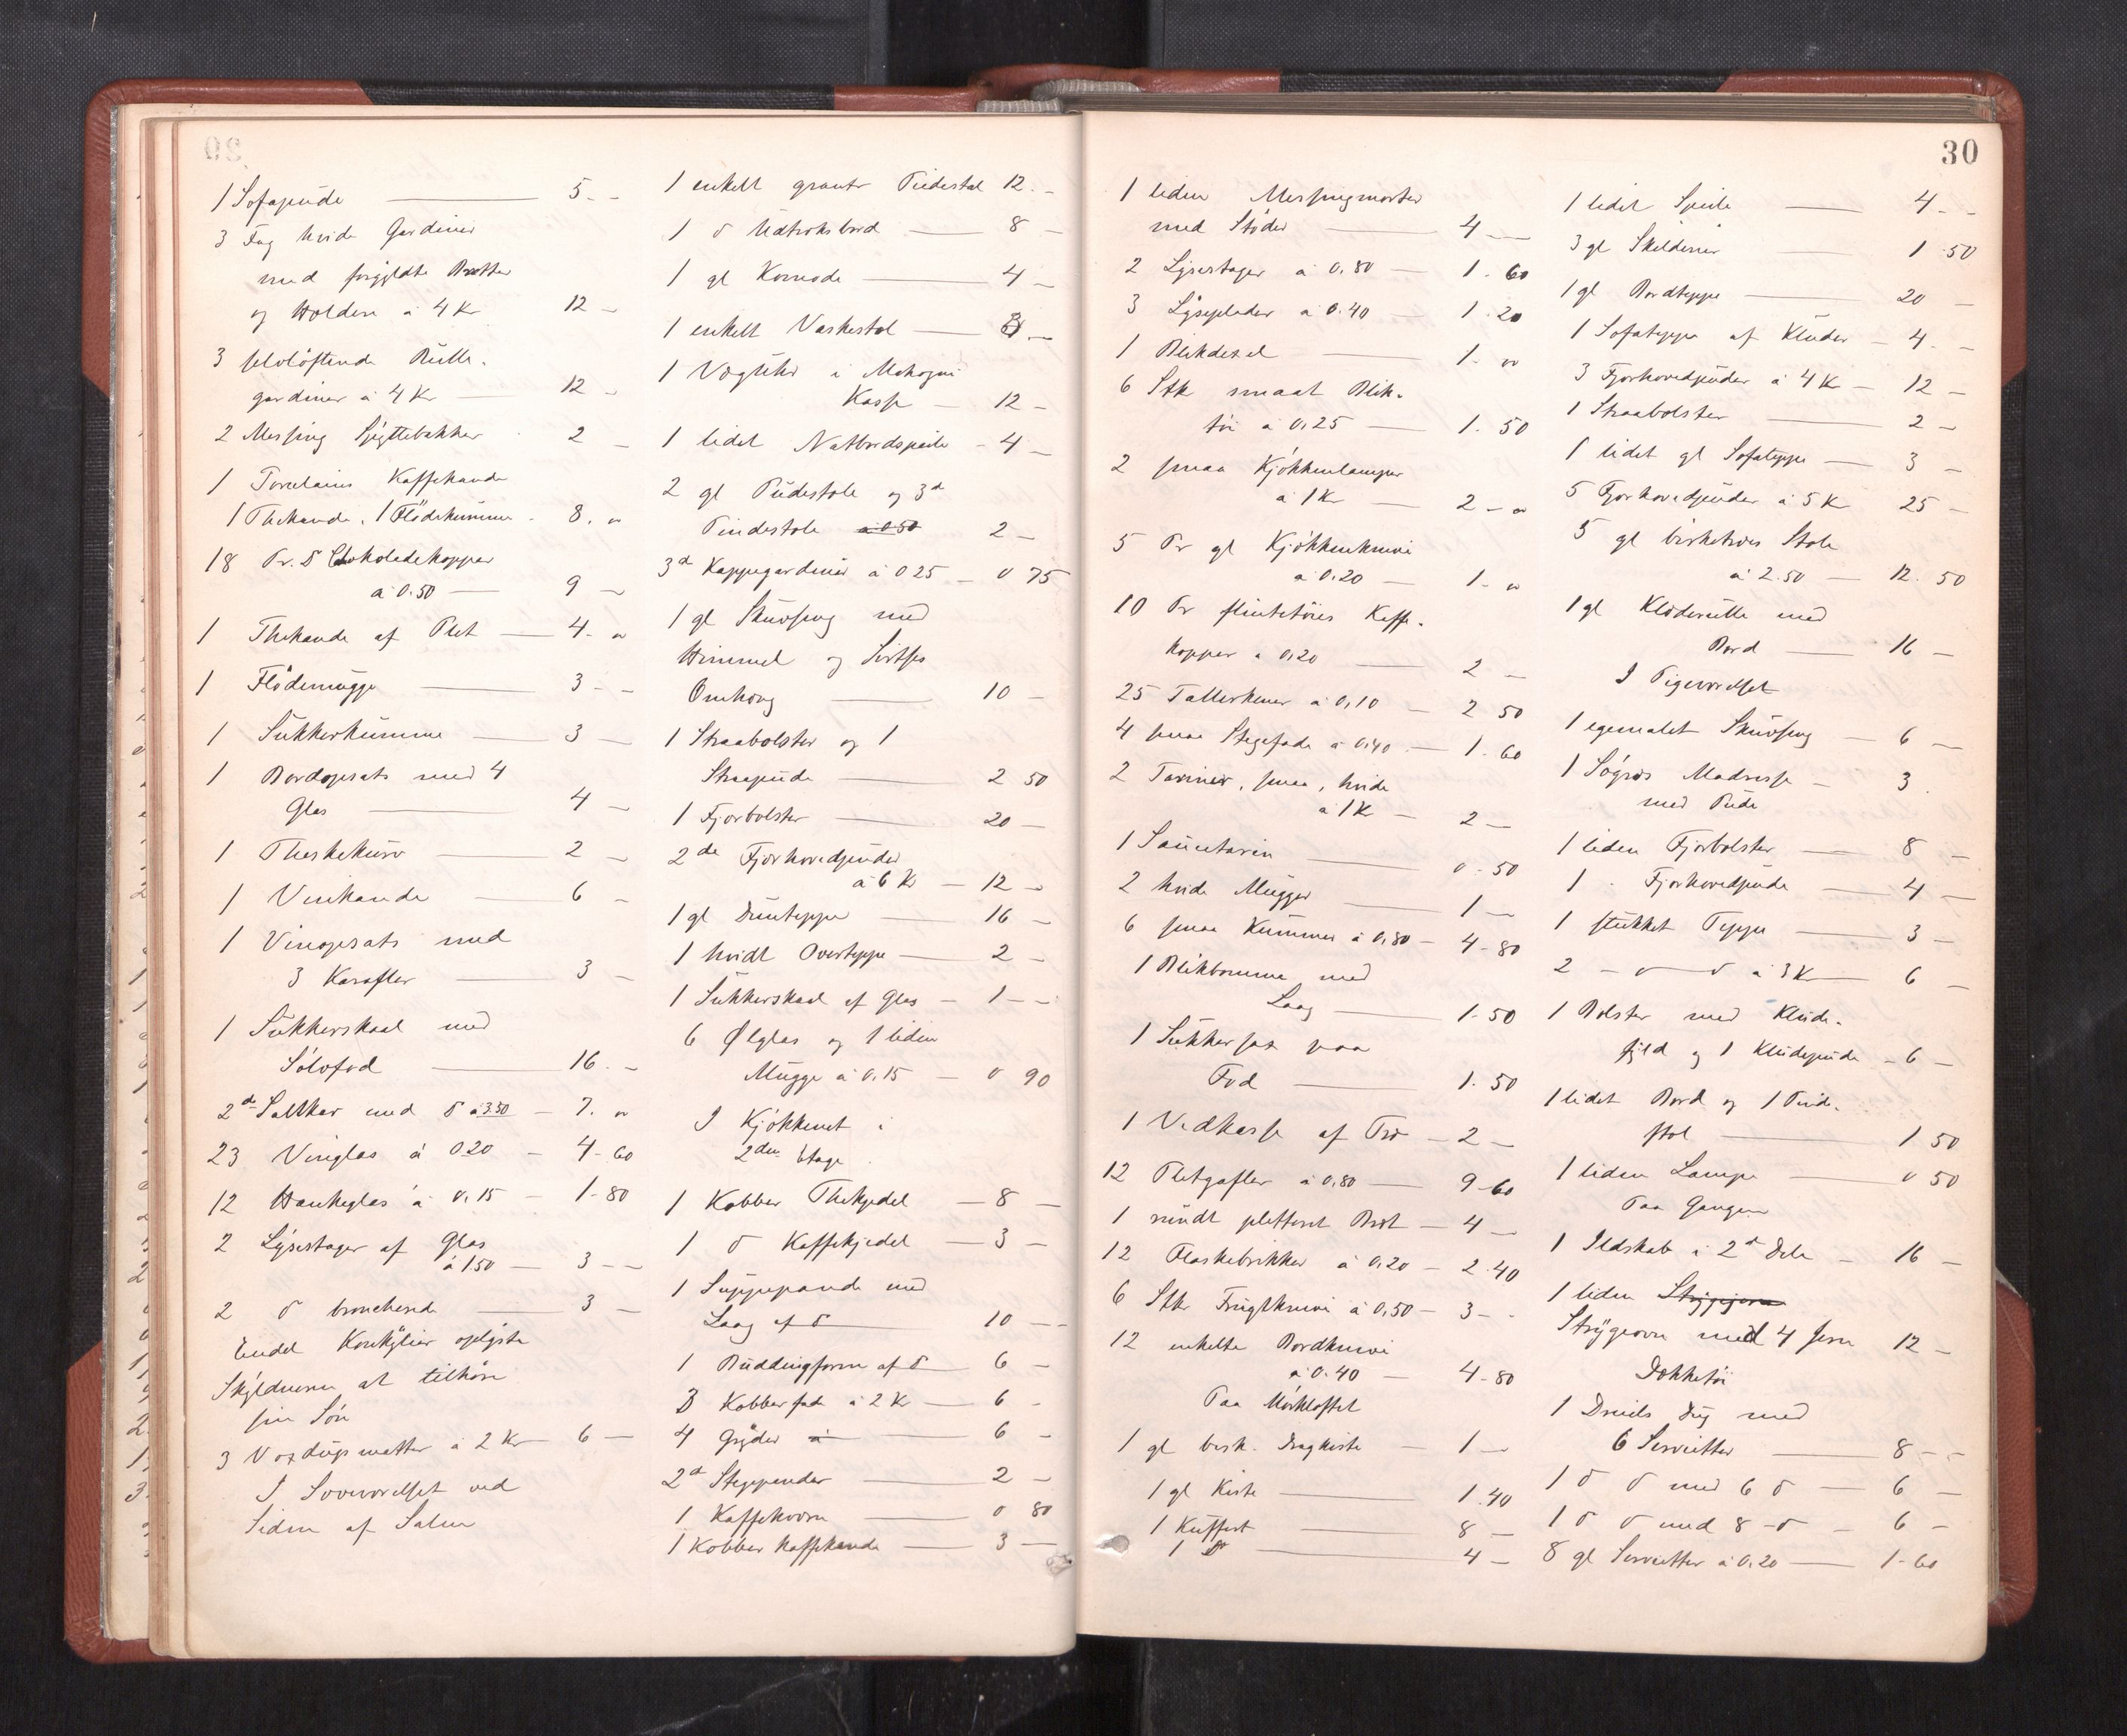 1 Sofapude 5 - -
3 Fag hvide Gardiner
med forgyldte Brætter
og Holdere à 4 Kr 12 -
3 selvløftende Rulle-
gardiner à 4 Kr 12 -
2 Messing Spyttebakker 2 -
1 Porcelains Kaffekande
1 Thekande, 1 Flödekumme - 8. "
18 Pr. D Chokoladekopper
à 0.50 9 -
1 Thekande af Plet 4 - "
1 Flödemugge 3 - -
1 Sukkerkumme 3 -
1 Bordopsats med 4
Glas 4 -
1 Theskekurv 2 -
1 Vinkande 6 -
1 Vinopsats med
3 Karafler 3 -
1 Sukkerskaal med
Sölvfod 16 . -
2d Saltkar med D à 3.50 - 7. "
23 Vinglas à 0.20 - 4 - 60
12 Hankeglas à 0.15 - 1 - 80
2 Lysestager af Glas
à 1.50 3 - -
2 D broncherede 3 -
Endel Konkylier oplyste
Skyldneren at tilhöre
sin Sön
3 Voxdugsmatter à 2 Kr 6 -
I Soveværelset ved
Siden af Salen
1 enkelt grantr Pidestal 12. -
1 D Udtræksbord 8 -
1 gl Komode 4 -
1 enkelt Vaskestol 3 -
1 Vægtuhr i Mahogni
Kasse - 12 -
1 lidet Natbordspeile - 4 -
2 gl Pudestole og 3d
Pindestole à 0 50 2 -
3d Kappegardiner à 0 25 - 0 75
1 gl Skuvseng med
Himmel og Sirtses
Omhæng 10 -
1 Straabolster og 1
Straapude 2 50
1 Fjærbolster 20 -
2de Fjærhovedpuder
à 6 Kr - 12 -
1 gl Duntæppe 16 -
1 hvidt Overtæppe 2 -
1 Sukkerskaal af Glas - 1 - -
6 Ølglas og 1 liden
Mugge à 0.15 - 0 90
I Kjökkenet i
2den Etage
1 Kobber Thekjedel - 8 -
1 D Kaffekjedel - 3 -
1 Suppepande med
Laag af D 10 - -
1 Buddingform af D 6 -
3 Kobberfade à 2 Kr 6 -
4 Gryder à 6 -
2d Stegepander 2 -
1 Kaffekværn 0 80
1 Kobber Kaffekande 3 -
30
1 liden Messingmorter
med Stöder 4 -
2 Lysestager à 0.80 - 1 - 60
3 Lyseplader à 0.40 - 1 . 20
1 Blikdexel 1 - "
6 Stk smaat Blik-
töi à 0.25 1. 50
2 smaa Kjökkenlamper
à 1 Kr 2 - "
5 Pr gl Kjökkenknive
à 0.20 1 - "
10 Pr flintetöies Kaffe-
kopper à 0.20 2 -
25 Tallerkener à 0.10 - 2 50
4 smaa Stegefade à 0.40 - 1 - 60
2 Teriner, smaa, hvide
à 1 Kr - 2 -
1 Sauceterin 0 - 50
2 hvide Mugger 1 -
6 smaa Kummer à 0.80 - 4 - 80
1 Blikbomme med
Laag 1 - 50
1 Sukkersax paa
Fod 1. 50
1 Vedkasse af Træ - 2 -
12 Pletgafler à 0.80 9 - 60
1 rundt pletteret Bræt - 4 -
12 Flaskebrikker à 0.20 - 2 - 40
6 Stkr Frugtknive à 0.50 - 3 - -
12 enkelte Bordknive
à 0.40 - 4 - 80
Paa Mörkloftet
1 gl birk. Dragkiste - 1 -
1 gl Kiste 1. 40
1 Kuffert 8 -
1 D 4 -
1 lidet Speile 4 - -
3 gl Skilderier 1 - 50
1 gl Bordteppe 20 -
1 Sofateppe af Kluder - 4. -
3 Fjærhovedpuder à 4 Kr - 12 -
1 Straabolster 2 -
1 lidet gl Sofateppe 3 -
5 Fjærhovedpuder à 5 Kr 25 -
5 gl birketræes Stole
à 2.50 12. 50
1 gl Klæderulle med
Bord 16 -
I Pigeværelset
1 egemalet Skuvseng - 6 -
1 Søgræs Madrasse - 3
med Pude
1 liden Fjærbolster 8 -
1 - Fjærhovedpude 4 -
1 stukket Teppe 3 -
2 - D D à 3 Kr 6 -
1 Bolster med Klude-
fyld og 1 Kludepude - 6 -
1 lidet Bord og 1 Pinde-
stol 1 50
1 liden Lampe 0 50
Paa Gangen
1 Ildskab i 2d Dele - 16 -
1 liden Strygejern
Strygeovn med 4 Jern 12 -
Dækketöi
1 Dreils Dug med
6 Servietter 8 - -
1 D D med 6 D 6 -
1 D D med 8 - D 6 -
8 gl Servietter à 0.20 1 - 60